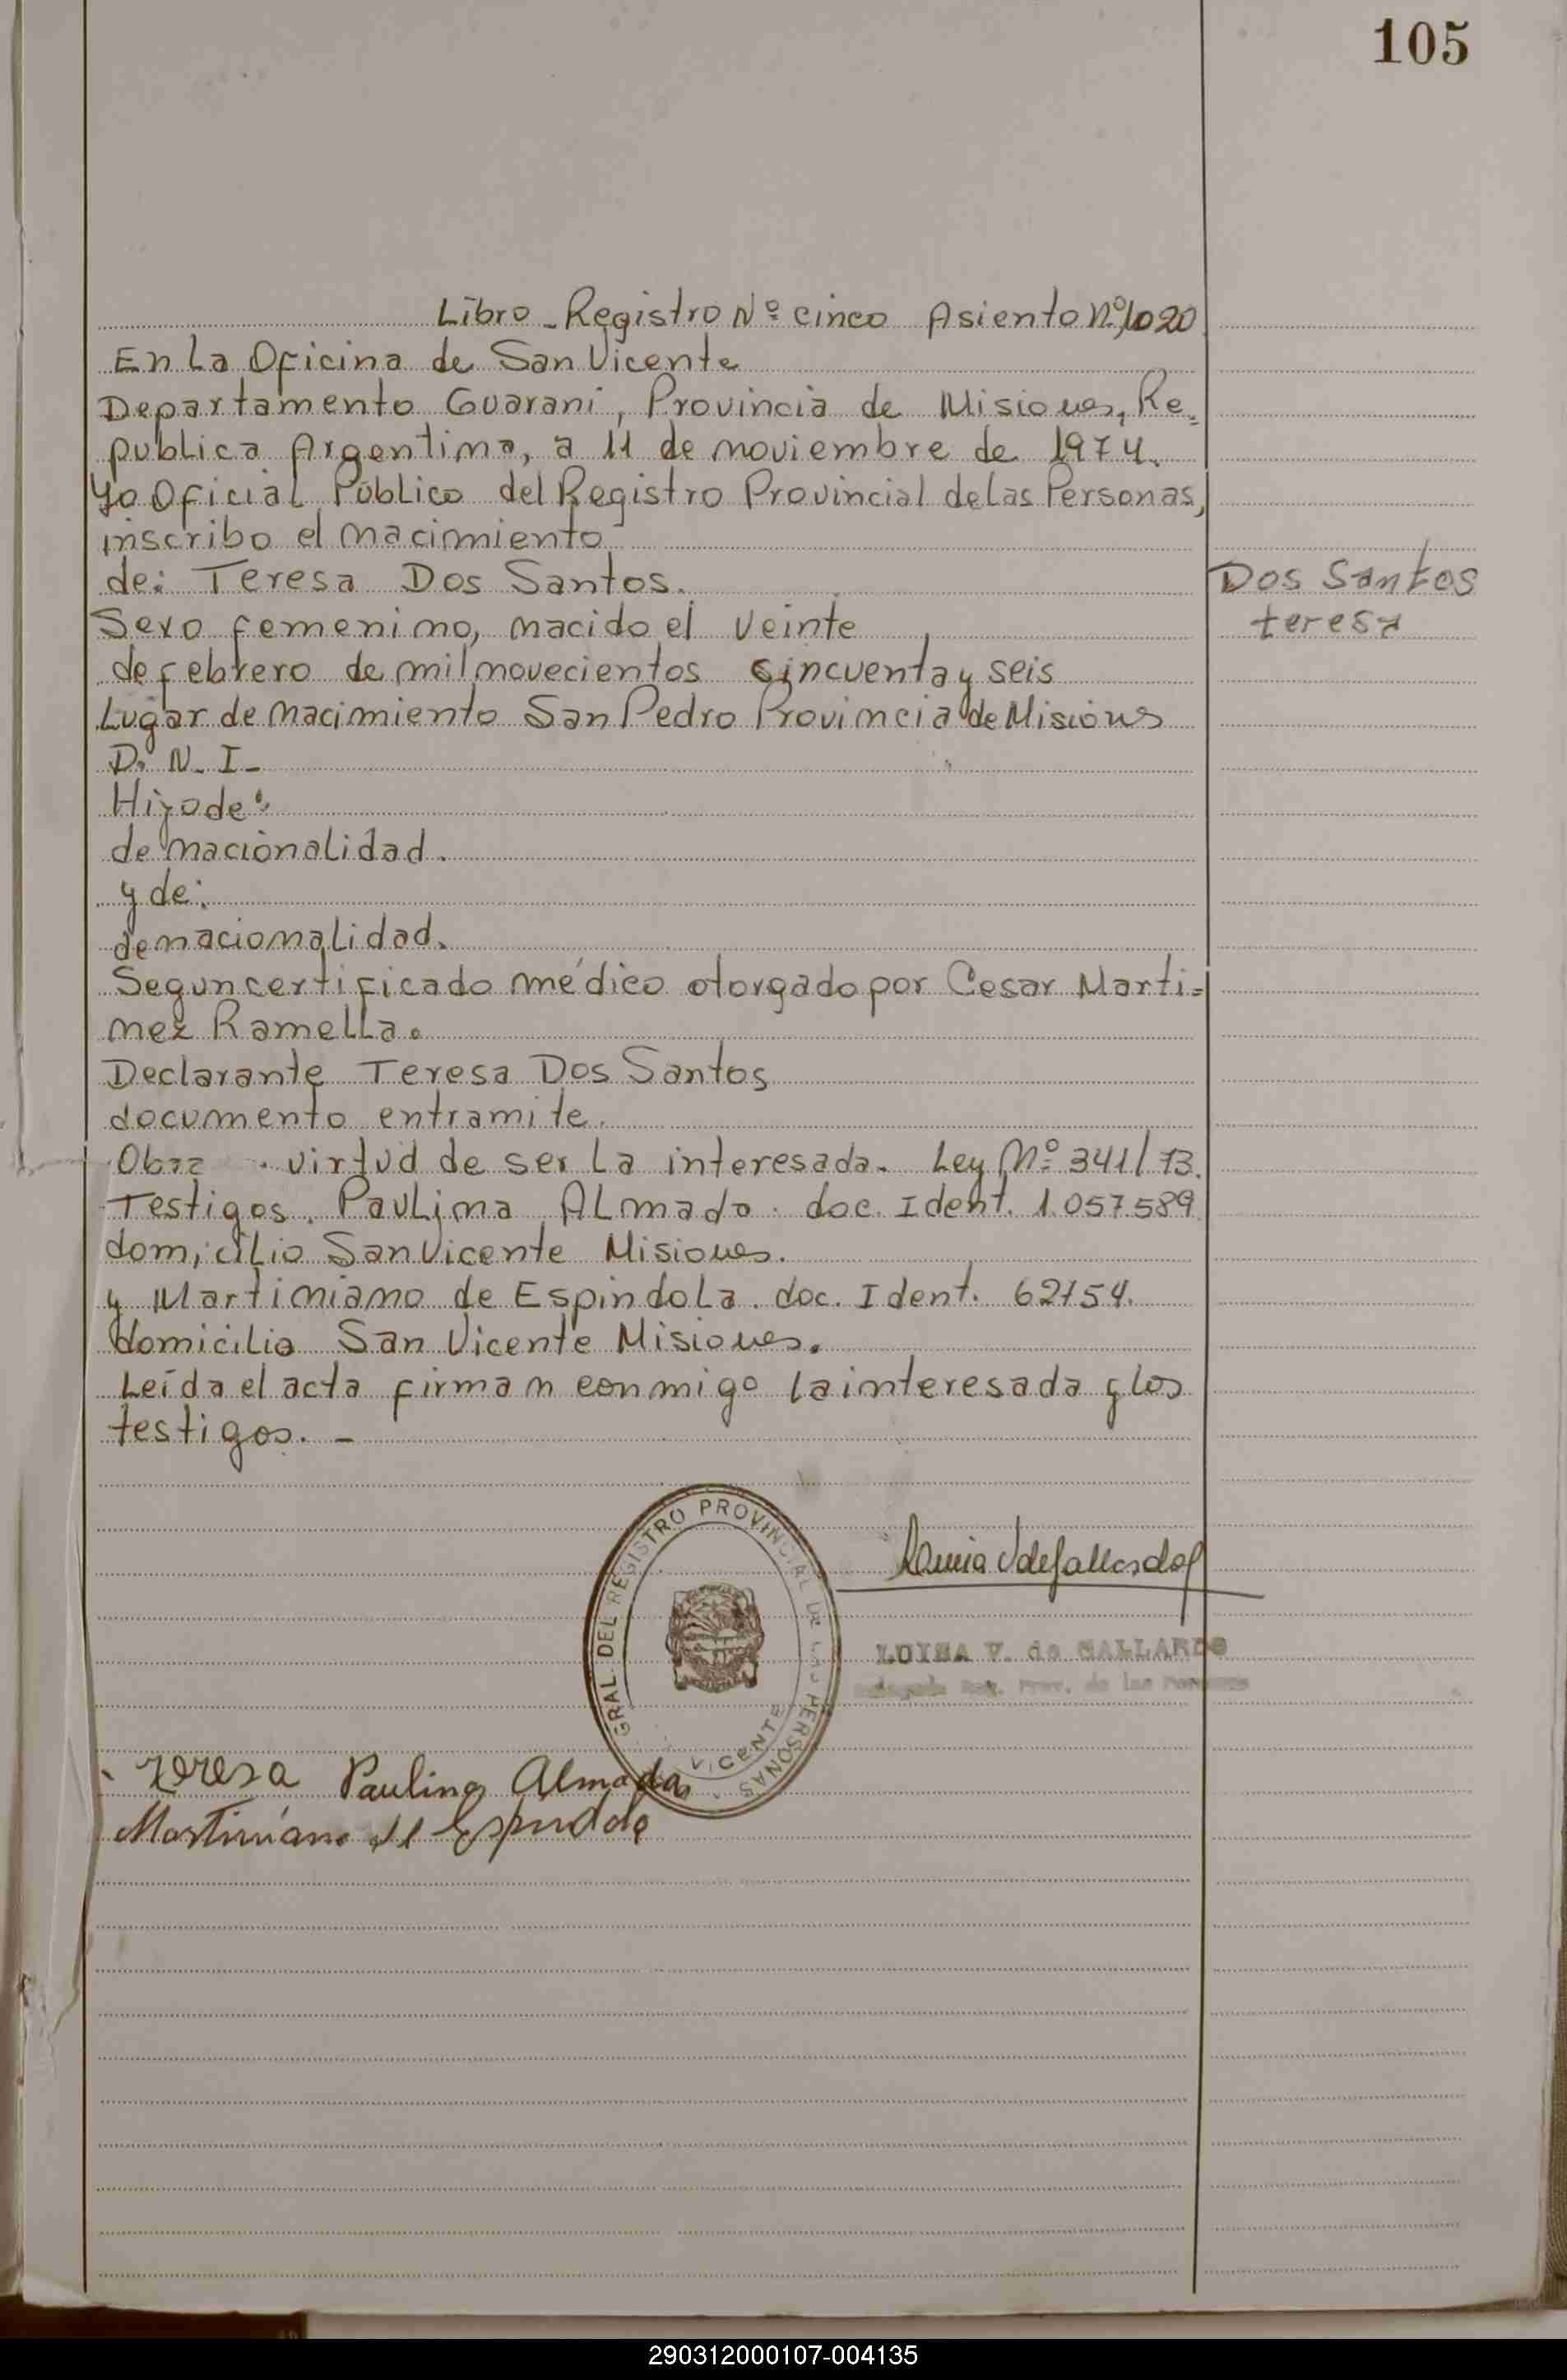 105
Libro - Registro Nº cinco Asiento nº 1020
En La Oficina de San Vicente
Departamento Guarani, Provincia de Misiones, Re=
publica Argentina, a 11 de noviembre de 1974.
Yo Oficial Público del Registro Provincial de las Personas,
inscribo el nacimiento
de: Teresa Dos Santos.
Dos Santos
teresa
Sexo femenino, nacido el veinte
de febrero de mil novecientos cincuenta y seis
Lugar de nacimiento San Pedro Provincia de Misiones
D. N. I.
Hijo de:
de nacionalidad.
y de:
de nacionalidad.
Segun certificado médico otorgado por Cesar Marti=
nez Ramella.
Declarante Teresa Dos Santos
documento en tramite.
Obra . virtud de ser La interesada. Ley Nº 341/73.
Testigos. Paulina Almada. doc. Ident. 1.057.589
domicilio San Vicente Misiones.
y Martiniano de Espindola. doc. Ident. 62154.
domicilio San Vicente Misiones.
Leída el acta firman conmigo la interesada y los
testigos. -
GRAL. DEL REGISTRO PROVINCIAL DE LAS PERSONAS
VICENTE
LUISA V. de GALLARDO
Reg. Prov. de las Personas
teresa Paulina Almada
Martiniano de Espindola
290312000107-004135